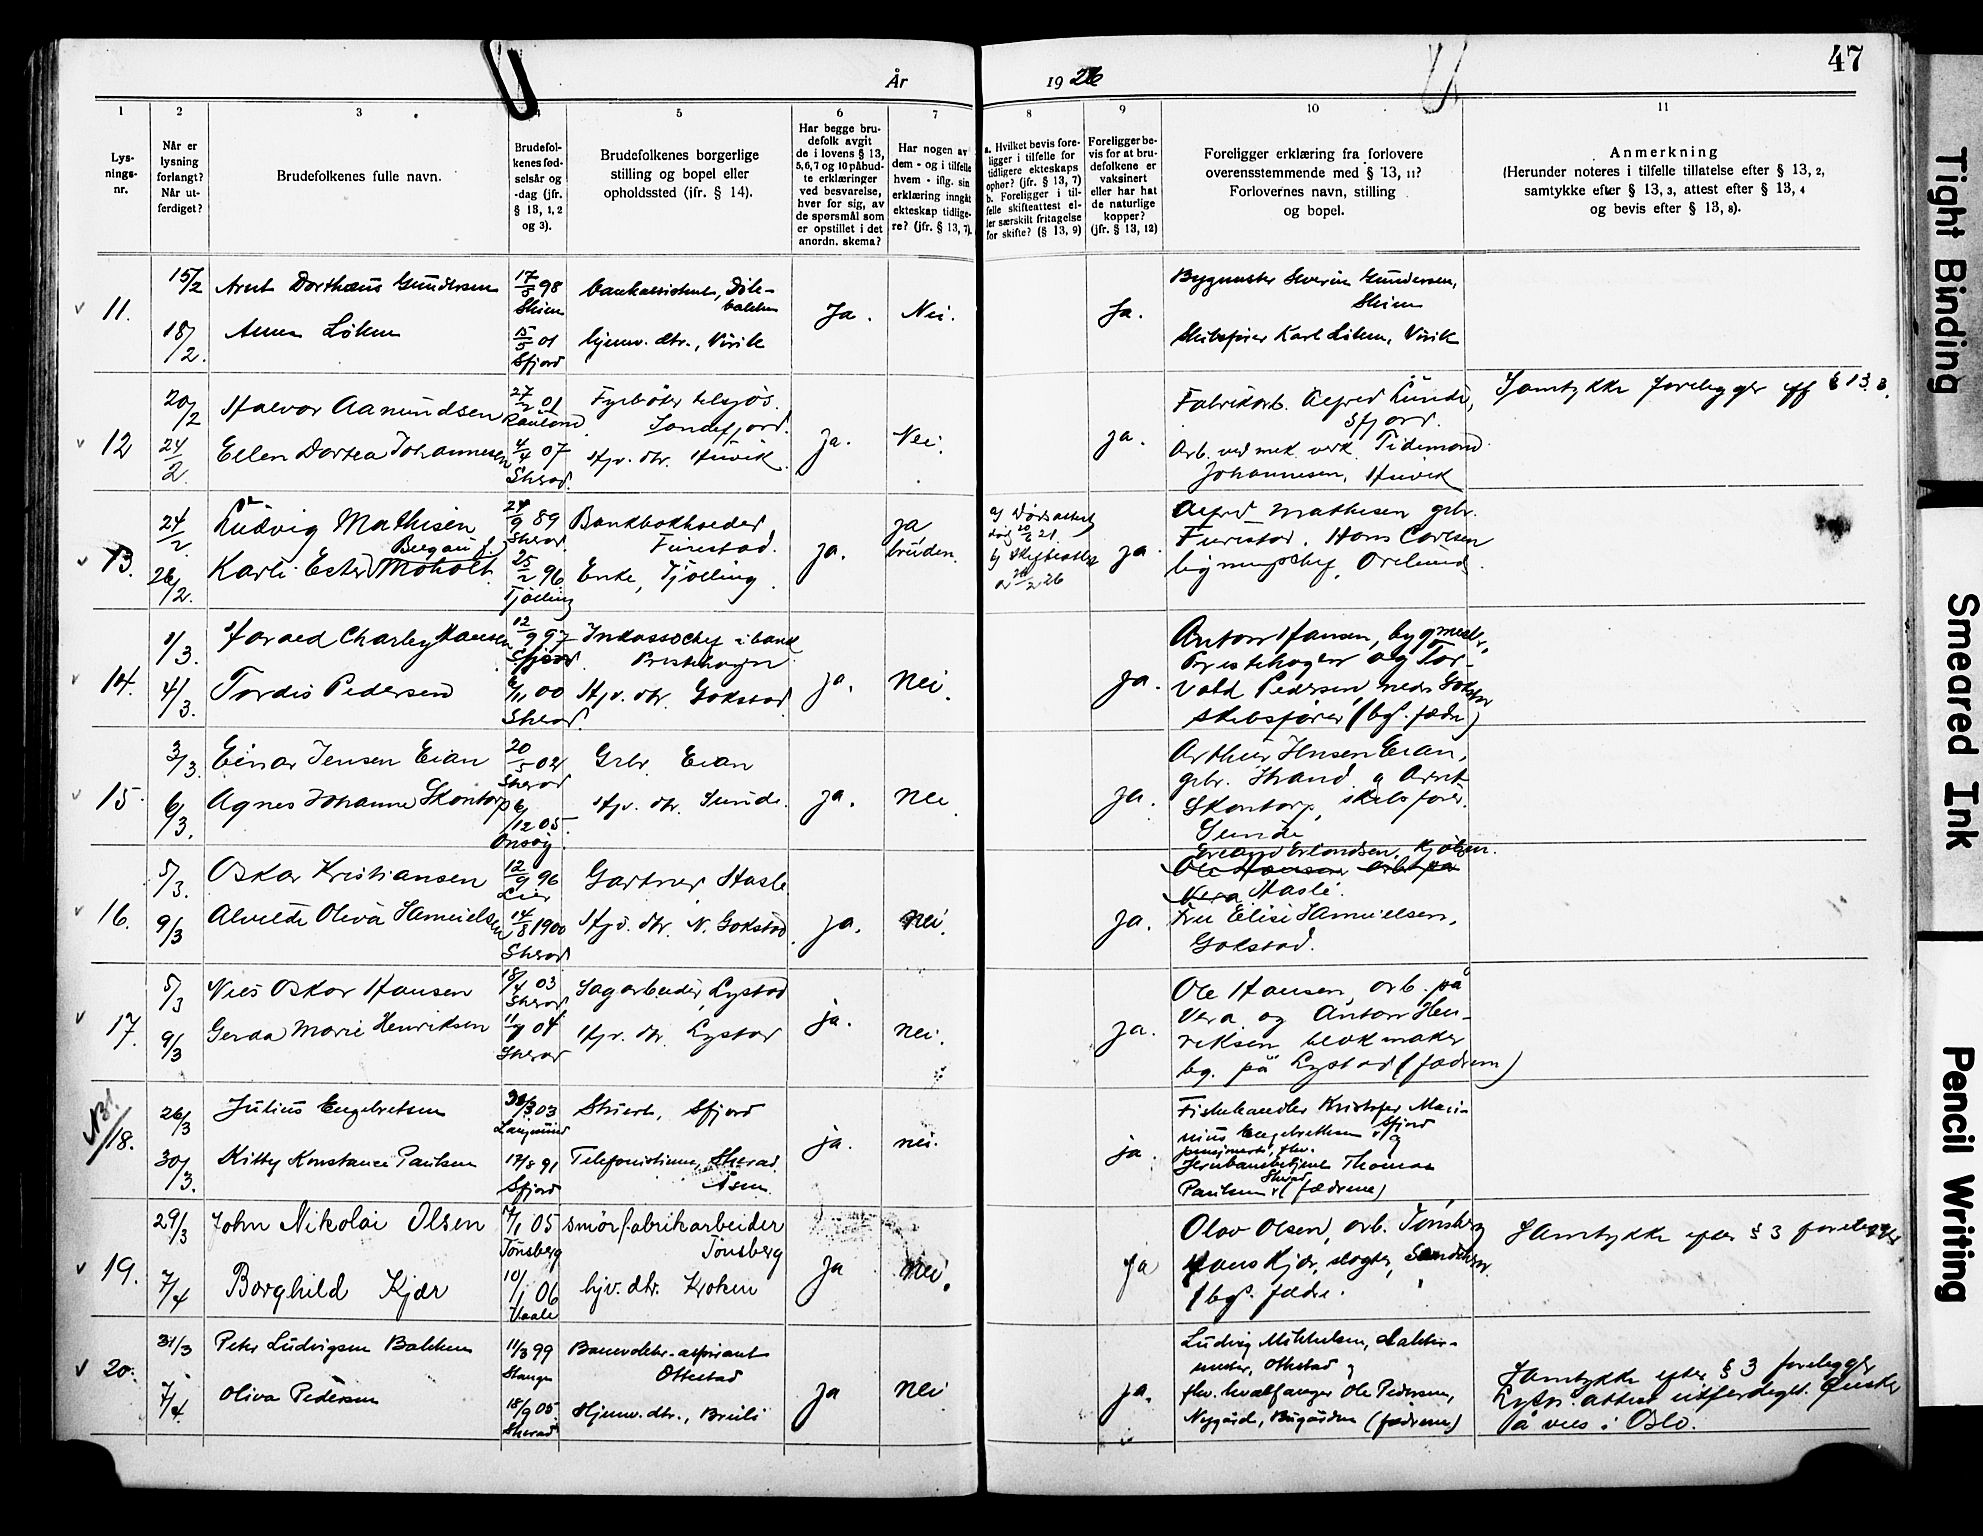 47
År 1926
1 2 3 4 5 6 7 8 9 10 11
Lys-
nings-
nr.
Når er
lysning
forlangt?
Når ut-
ferdiget?
Brudefolkenes fulle navn.
Brudefol-
kenes fød-
selsår og
-dag (jfr.
§ 13, 1, 2
og 3).
Brudefolkenes borgerlige
stilling og bopel eller
opholdssted (ifr. § 14).
Har begge bru-
defolk avgit
de i lovens § 13,
5, 6, 7 og 10 påbud-
te erklæringer
ved besvarelse,
hver for sig, av
de spørsmål som
er opstillet i det
anordn. skema?
Har nogen av
dem - og i tilfelle
hvem - iflg. sin
erklæring inngåt
ekteskap tidlige-
re? (jfr. § 13, 7).
a. Hvilket bevis fore-
ligger i tilfelle for
tidligere ekteskaps
ophør? (jfr. § 13, 7)
b. Foreligger i til-
felle skifteattest el-
ler særskilt fritagelse
for skifte? (§ 13, 9)
Foreligger be-
vis for at bru-
defolkene er
vaksinert
eller har hat
de naturlige
kopper?
(jfr. § 13, 12)
Foreligger erklæring fra forlovere
overensstemmende med § 13, 11?
Forlovernes navn, stilling
og bopel.
Anmerkning
(Herunder noteres i tilfelle tillatelse efter § 13, 2,
samtykke efter § 13, 3, attest efter § 13, 4
og bevis efter § 13, 8).
11.
15/2
18/2.
Arnt Dorthæus Gundersen
Anna Løken
17/5 98
Skien
15/5 01
Sfjord
bankassistent,
hjemv. dtr., Virik
Ja.
Nei.
Ja.
Bygmester Severin Gundersen,
Skien
Skibsfører Karl Løken, Virik
12
20/2
24/2.
Halvor Aamundsen
Ellen Dortea Johannesen
27/2 01
Rauland
4/4 07
Sherad.
Fyrbøter tilsjøs.
Sandefjord.
Hjv. dtr. Huvik
ja.
Nei.
ja.
Fabrikarb. Alfred Lunde,
Sfjord.
Arb. ved mek. verk. Tidemand
Johannesen, Huvik
Samtykke foreligger eff § 13.3.
13.
24/2.
26/2.
Ludvig Mathisen
Karli Ester Moholt
24/9 89
Sherad.
25/2 96
Tjølling
Bankbokholder
Furustad.
Enke, Tjølling.
ja.
ja
bruden.
a) Dødsattest
b) Skifteattest
ja
Alfred Mathisen gbr.
Furustad. Hans Carlsen
14.
1/3.
4/3.
Harald Charley Hansen
Tordis Pedersen
12/9 97
Sfjord
6/11 00
Sherad.
Inkassochef i bank
Prestehagen
Hjv. dtr. Gokstad
ja.
Nei.
ja.
Anton Hansen, bygmester,
Prestehagen og Tor-
vald Pedersen, nedr Gokstad
skibsfører (bg. fædre)
15.
3/3.
6/3.
Einar Jensen Eian
Agnes Johanne Skontorp
20/5 02
Sherad
6/12 05.
Onsøy
Gbr. Eian
Hjv. dtr. Sunde.
ja.
Nei
ja.
Arthur Jensen Eian,
gbr. Strand og Arnt
Skontorp, skibsfører.
Sunde
16.
5/3.
9/3
Oskar Kristiansen
Alvilde Oliva Samuelsen
12/9 96
Lier
14/8 1900
Sherad
Gartner Hasle
Hjv. dtr. N. Gokstad.
ja.
nei.
ja.
Erland Erlandsen,
Ole Hansen arb. på
Vera Hasle.
Fru Elise Samuelsen,
Gokstad.
17.
5/3
9/3
Nils Oskar Hansen
Gerda Marie Henriksen
18/4 03
Sherad
11/9 04
Sherad
Sagarbeider, Lystad
Hjv. dtr. Lystad
ja.
nei.
ja.
Ole Hansen, arb. på
Vera og Anton Hen-
riksen blokmaker
bg. på Lystad (fædrene)
18.
26/3
30/3.
Julius Engebretsen
Kitty Konstance Paulsen
03
Langesund
17/8 91
Sfjord
Stuert, Sfjord
Telefonistinne, Sherad
ja.
nei.
ja.
Fiskehandler Kristofer Mari-
nius Engebretsen Sfjord og
Jernbanebetjent Thomas
Paulsen, Sherad (fædrene)
19.
29/3
7/4
John Nikolai Olsen
Borghild Kjær
7/1 05
Tønsberg
10/1 06
Vaale
smørfabrikarbeider
Tønsberg
hjv. dtr. Kroken
ja
nei.
ja
Olav Olsen, arb. Tønsberg
Hans Kjær, slagter,
(bg. fædre.
Samtykke efter § 3 foreligger
20.
31/3
7/4.
Peter Ludvigsen Bakken
Oliva Pedersen
11/3 99
Stange
18/9 05.
Sherad
Banevokter-aspirant
Ottestad
Hjemv. dtr., Breili
ja
nei
ja.
Ludvig Mikkelsen,
Ottestad og
fhv. hvalfanger Ole Pedersen,
Nygård, Bugården (fædrene)
Samtykke efter § 3 foreligger
Lysn. attest utferdiget. Ønsker
å vies i Oslo.
Tight Binding
Smeared Ink
Pencil Writing